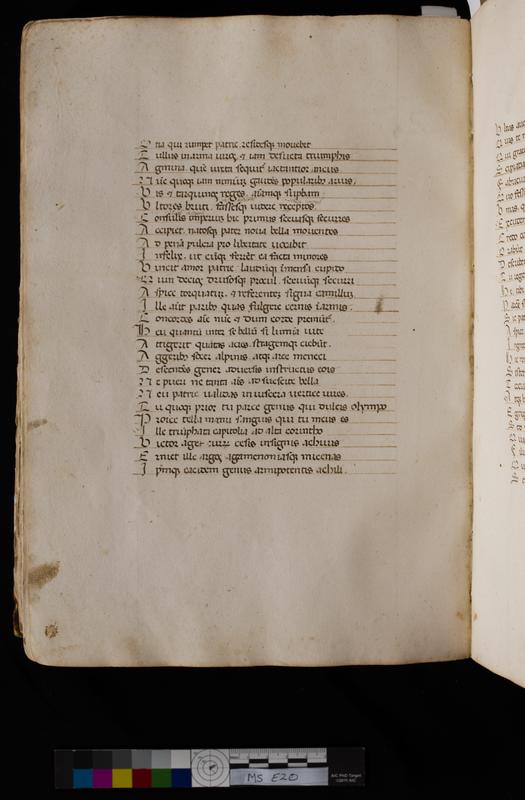 O tia qui rumpet patrie, residesq; mouebit
T ullus in arma uiros, & iam desueta triumphis
A gmina. quē iuxta sequit' iactantior ancus
N ūc quoq; iam nimiuʒ gaudēs popularib; auris.
V is & tarquinios reges, aīamq; supbam
V ltoris bruti, fascesq; uidere receptos.
C onsulis imperiuʒ hic primus seuasq; secures
A ccipiet, natosq; pater noua bella mouentes
A d penā pulcra pro libertate uocabit
I nfelix, ut cūq; ferēt ea facta minores
V incet amor patrie laudūq; imensa cupido
Q uin decios drusosq; procul, seuūq; securi
A spice torquatuʒ, & referentē signa camilluʒ
I lle aūt parib; quas fulgere cernis ī armis:
C oncordes aīe nūc & dum corde premūt'.
H eu quantū inter se bellū si lumīa uite
A ttigerīt quātas acies, stragemq; ciebūt.
A ggerib; socer alpinis, atq; arce moneci
D escēdēs gener aduersis instructus eois
N e pueri ne tanta aīs adsuescite bella
N eu patrie ualidas in uiscera uertite uires.
T u quoq; prior tu parce genus qui ducis olympo
P roice tella manu sanguis qui tu meus es
I lle triūphata capitolia ad alta corintho
V ictor aget currū cesis insignis achiuis
E ruet ille argos agamenoniasq; micenas
I psūq; eacidem genus armipotentis achili.
MS E20